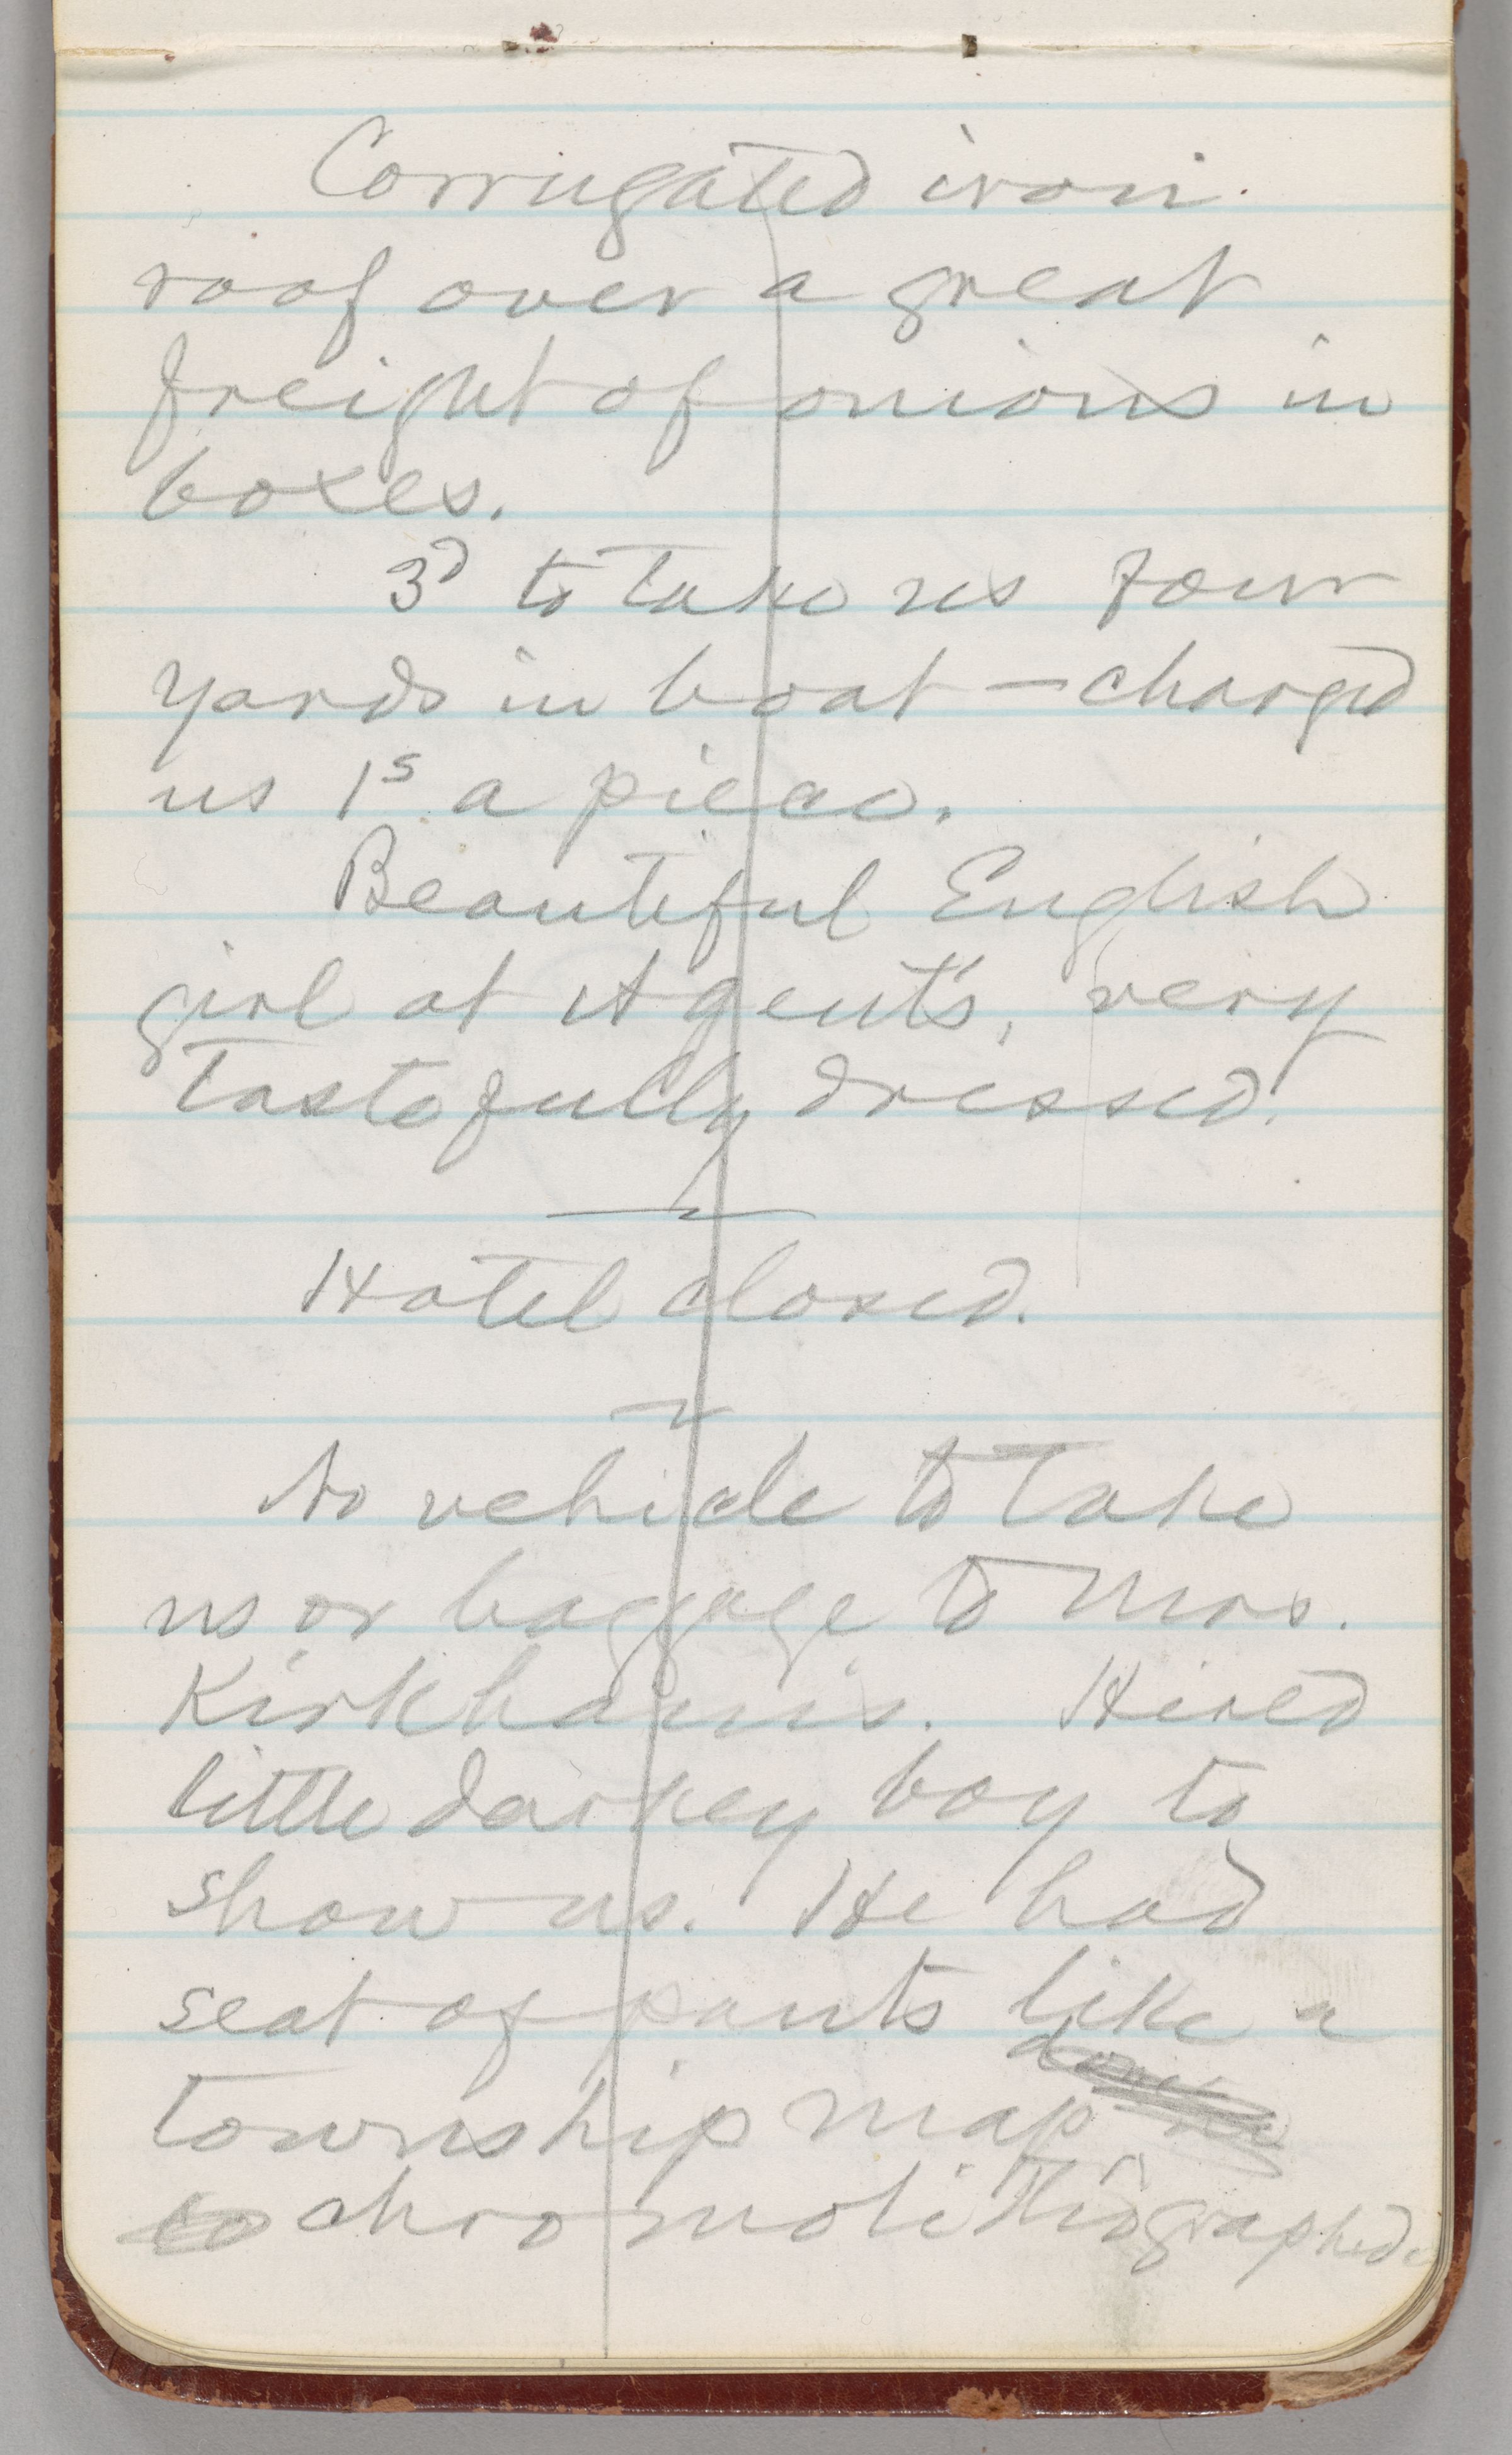 Corrugated iron
roof over a great
freight of onions in
boxes.
3d to take us four
yards in boat — charged
us 1s a piece.
Beautiful English
girl at Agent's, very
tastefully dressed.
Hotel closed.
No vehicle to take
us or baggage to Mrs.
Kirkham's. Hired
little darkey boy to
show us. He had
seat of pants like a
township map
chromolithographed.